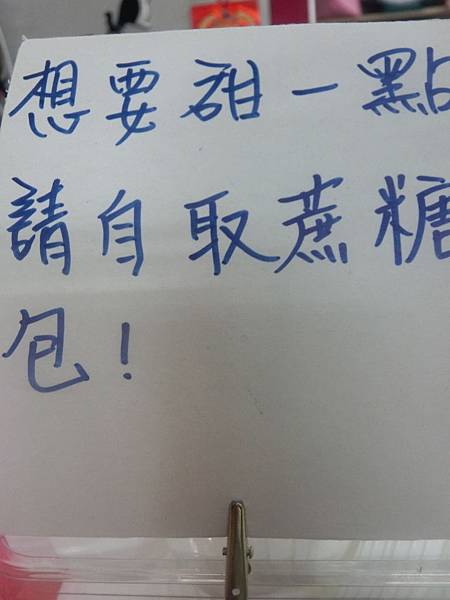 想要甜一點
請自取蔗糖
包!